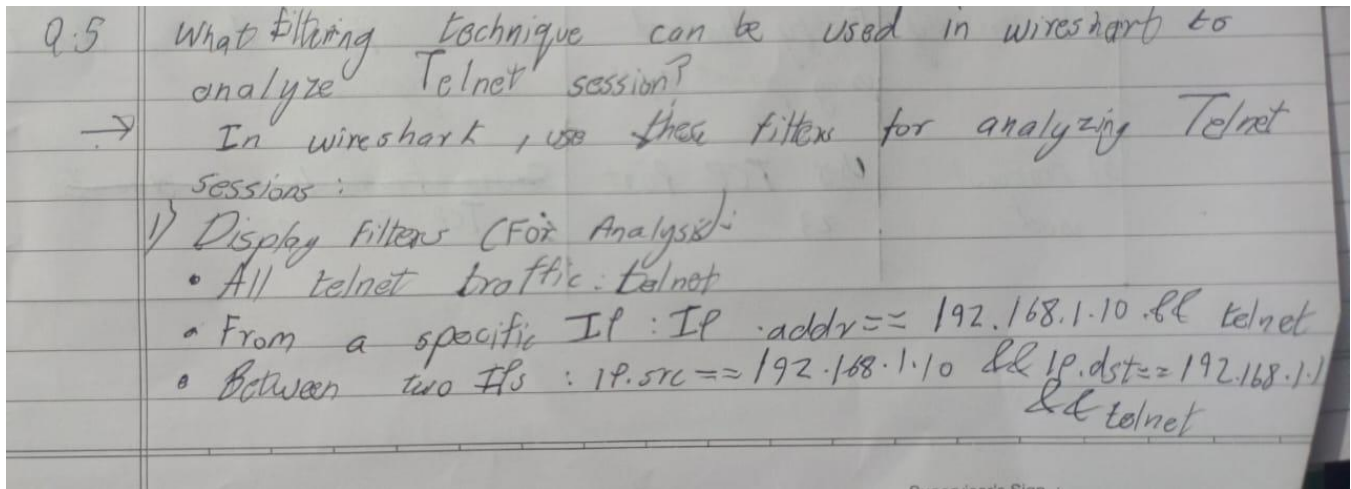 Q.5 What filtering technique can be used in wireshark to
analyze Telnet session?
→ In wireshark, use these filters for analyzing Telnet
sessions:
1) Display Filters (For Analysis):
• All telnet traffic: telnet
• From a specific IP : IP .addr== 192.168.1.10 && telnet
• Between two IPs : IP.src==192.168.1.10 && ip.dst==192.168.1.1
&& telnet